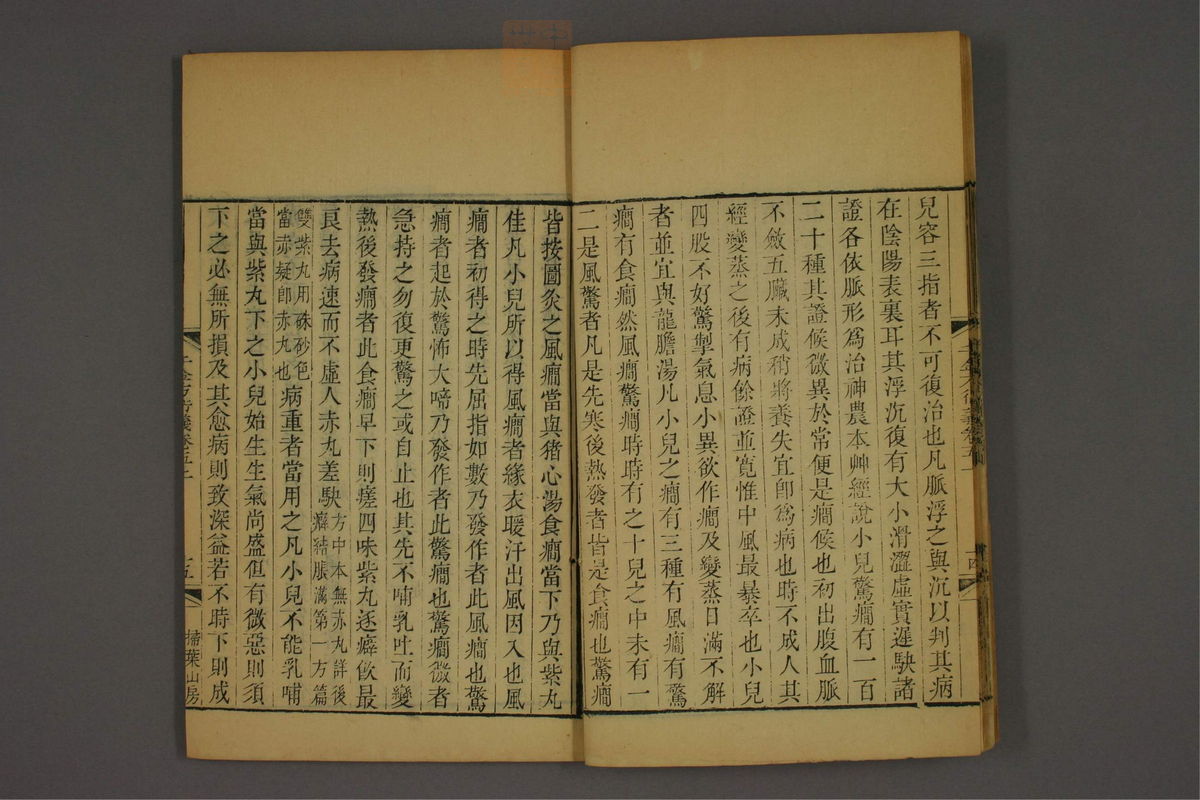 兒容三指者不可復治也凡脈浮之與沉以判其病
在陰陽表裏耳其浮沉復有大小滑澀虛實遲駃諸
證各依脈形爲治神農本艸經說小兒驚癎有一百
二十種其證候微異於常便是癎候也初出腹血脈
不斂五臟未成稍將養失宜卽爲病也時不成人其
經變蒸之後有病餘證並寬惟中風最暴卒也小兒
四股不好驚掣氣息小異欲作癎及變蒸日滿不解
者並宜與龍膽湯凡小兒之癎有三種有風癎有驚
癎有食癎然風癎驚癎時時有之十兒之中未有一
二是風驚者凡是先寒後熱發者皆是食癎也驚癎
皆按圖灸之風癎當與猪心湯食癎當下乃與紫丸
佳凡小兒所以得風癎者緣衣暖汗出風因入也風
癎者初得之時先屈指如數乃發作者此風癎也驚
癎者起於驚怖大啼乃發作者此驚癎也驚癎微者
急持之勿復更驚之或自止也其先不哺乳吐而變
熱後發癎者此食癎早下則瘥四味紫丸逐癖飲最
良去病速而不虛人赤丸差駃方中本無赤丸詳後癖結脹滿第一方篇
雙紫丸用硃砂色當赤疑卽赤丸也病重者當用之凡小兒不能乳哺
當與紫丸下之小兒始生生氣尚盛但有微惡則須
下之必無所損及其愈病則致深益若不時下則成
千金方衍義卷五上
五
掃葉山房